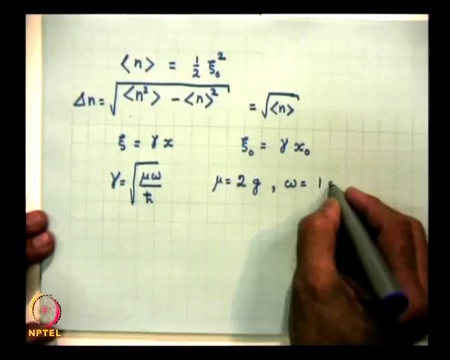 ⟨n⟩ = 1/2 ξ₀²
Δn = √(⟨n²⟩ - ⟨n⟩²) = √⟨n⟩
ξ = γ x ξ₀ = γ x₀
γ = √(μω/ħ) μ = 2 g , ω = 1
NPTEL